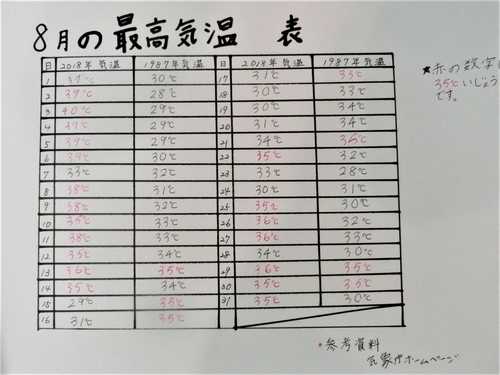 8月の最高気温 表
日 2018年気温 1987年気温 日 2018年気温 1987年気温
1 39℃ 30℃ 17 31℃ 33℃
2 39℃ 28℃ 18 30℃ 33℃
3 40℃ 29℃ 19 30℃ 34℃
4 39℃ 29℃ 20 31℃ 34℃
5 39℃ 29℃ 21 34℃ 35℃
6 39℃ 30℃ 22 35℃ 32℃
7 33℃ 32℃ 23 33℃ 28℃
8 38℃ 31℃ 24 30℃ 31℃
9 38℃ 32℃ 25 35℃ 30℃
10 35℃ 33℃ 26 36℃ 32℃
11 38℃ 33℃ 27 36℃ 33℃
12 35℃ 34℃ 28 34℃ 30℃
13 36℃ 35℃ 29 36℃ 35℃
14 35℃ 34℃ 30 35℃ 35℃
15 29℃ 35℃ 31 35℃ 30℃
16 31℃ 35℃
★赤の数字
35℃いじょう
です。
・参考資料
気象庁ホームページ